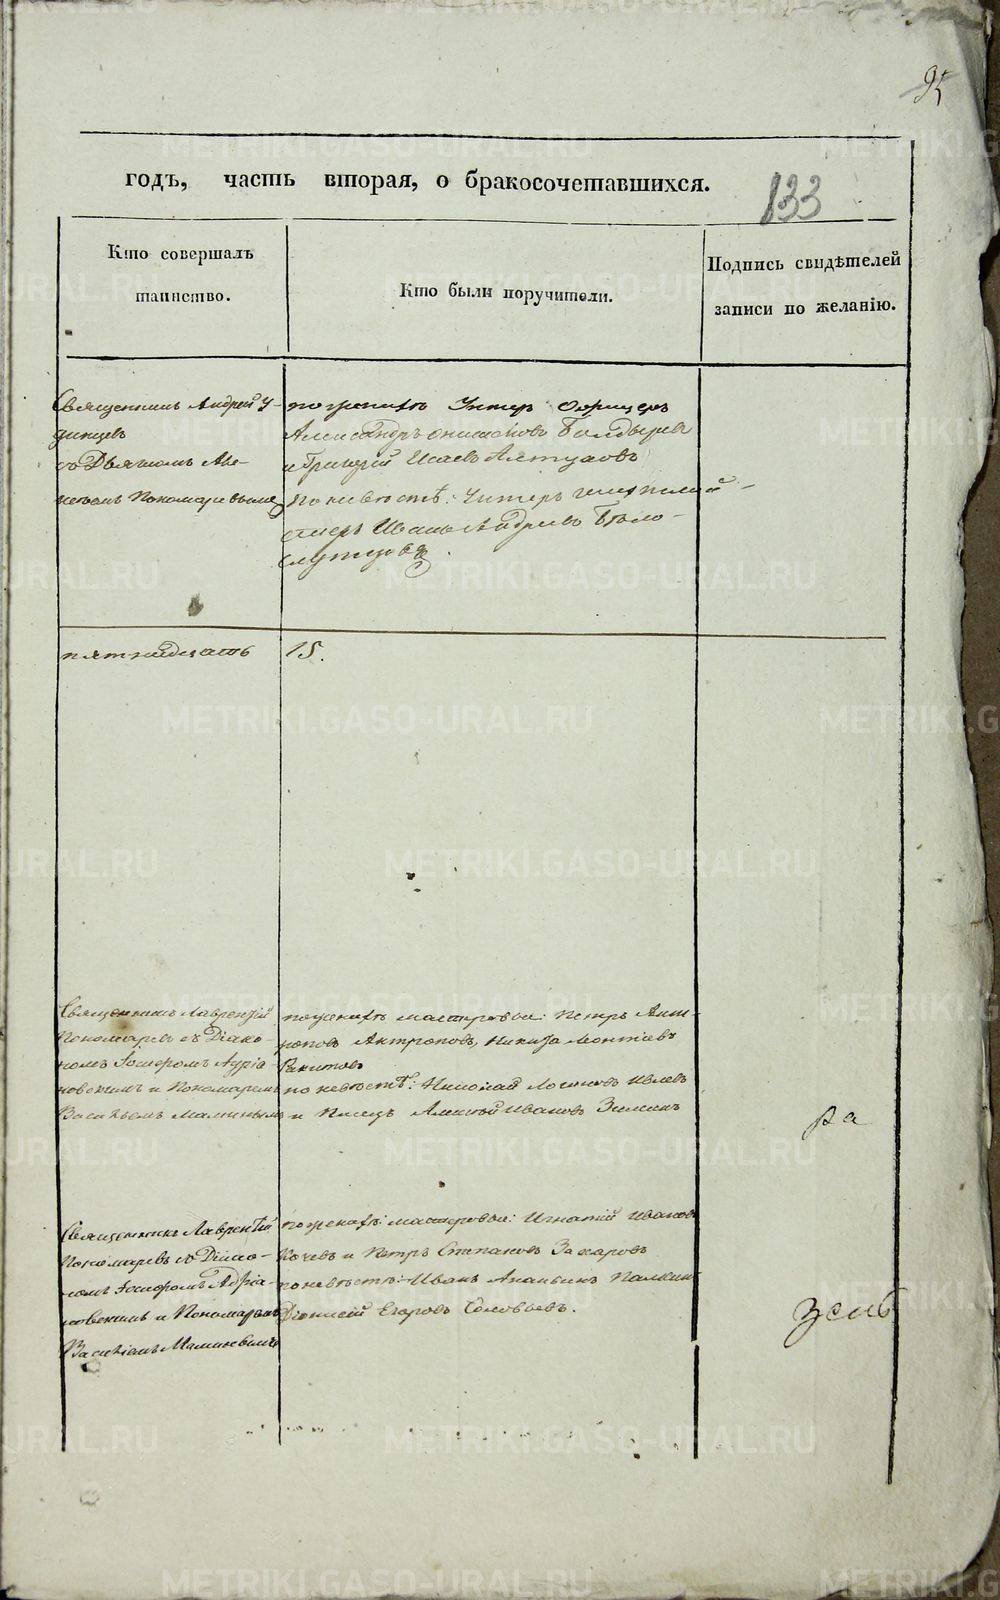 95
годъ, часть вторая, о бракосочетавшихся.
133
Кто совершалъ
таинство.
Кто были поручители.
Подпись свидѣтелей
записи по желанію.
Священникъ Андрей У-
динцевъ
съ Дьячкомъ Але-
по женихѣ Унтеръ Офицеръ
Александръ Болдыревъ
и Григорій Исаевъ
По невѣстѣ: Унтеръ
Иванъ Андреевъ Бѣло-
пятнадцать
15.
Священникъ Лаврентій
Пономаревъ съ Діако-
номъ Іосифомъ Адріа-
новскимъ и Пономаремъ
Васильемъ Малинымъ
по женихѣ мастеровые: Петръ Анти-
повъ Антроповъ, Никита Леонтіевъ
Ракитовъ
по невѣстѣ: Николай Логиновъ Ивлевъ
и Писецъ Алексѣй Ивановъ Зиминъ
ра
Священникъ Лаврентій
Пономаревъ съ Діако-
номъ Іосифомъ Адріа-
новскимъ и Пономаремъ
по женихѣ: мастеровые: Игнатій Ивановъ
Кочевъ и Петръ Степановъ Захаровъ
по невѣстѣ: Иванъ Ананьинъ
Діонисій Егоровъ Соловьевъ.